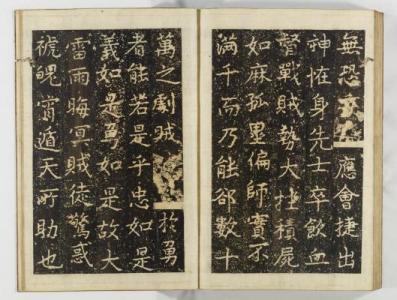 無恐應會捷出
神恠身先士卒飲血
督戰賊勢大挫積屍
如麻孤壘偏師實不
滿千而乃能郤數十
萬之劇賊於勇
者能若是乎忠如是
義如是勇如是故大
雷雨晦冥賊徒驚惑
褫魄宵遁天所助也